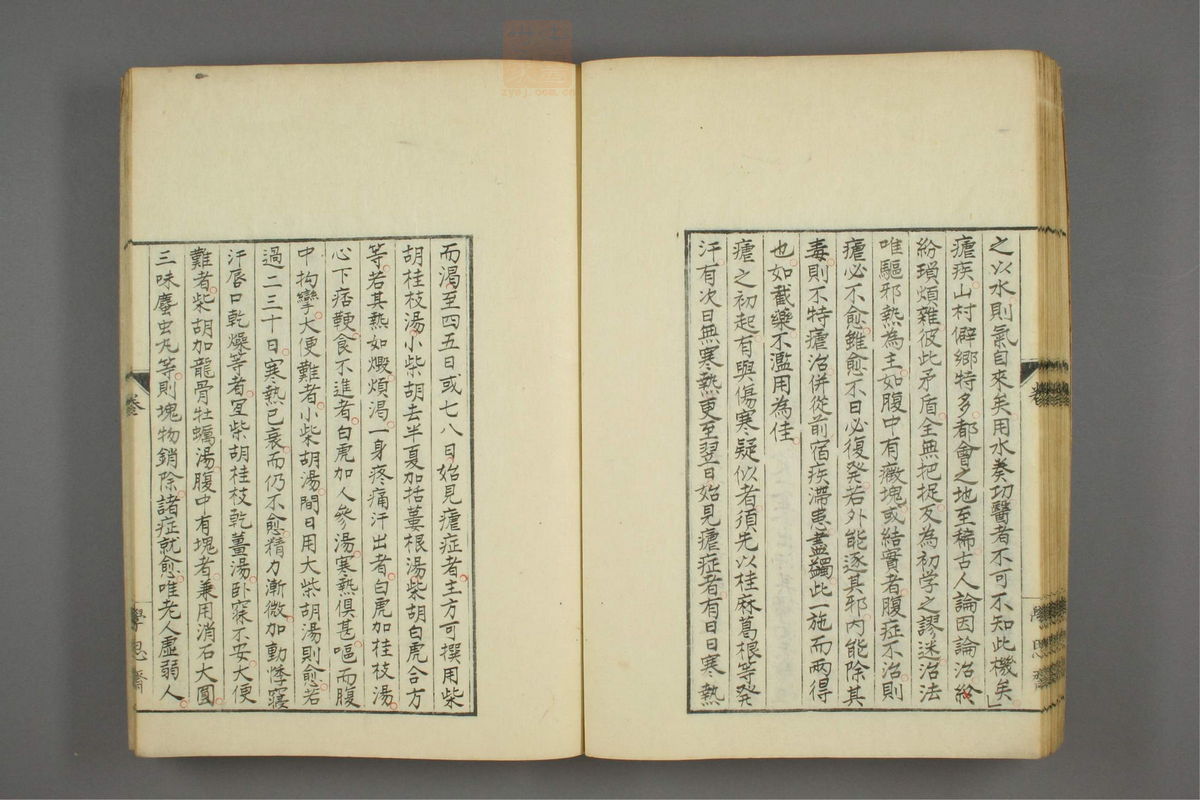 之以水則氣自來矣用水奏功醫者不可不知此機矣」
瘧疾山村僻鄉特多都會之地至稀古人論因論治紛
紛瑣煩雜彼此矛盾全無把捉反為初学之謬迷治法
唯驅邪熱為主如腹中有癥塊或結實者腹症不治則
瘧必不愈雖愈不日必復發若外能逐其邪內能除其
毒則不特瘧治併從前宿疾滯患盡蠲此一施而兩得
也如截藥不濫用為佳
瘧之初起有與傷寒疑似者須先以桂麻葛根等發
汗有次日無寒熱更至翌日始見瘧症者有日日寒熱
而渴至四五日或七八日始見瘧症者主方可撰用柴
胡桂枝湯小柴胡去半夏加括蔞根湯柴胡白虎合方
等若其熱如燬煩渴一身疼痛汗出者白虎加桂枝湯
心下痞鞕食不進者白虎加人參湯寒熱俱甚嘔而腹
中拘攣大便難者小柴胡湯間日用大柴胡湯則愈若
過二三十日寒熱已衰而仍不愈精力漸微加動悸寢
汗唇口乾燥等者宜柴胡桂枝乾薑湯臥寐不安大便
難者柴胡加龍骨牡蠣湯腹中有塊者兼用消石大圓
三味䗪虫丸等則塊物銷除諸症就愈唯老人虛弱人
學思齋
zysj.com.cn